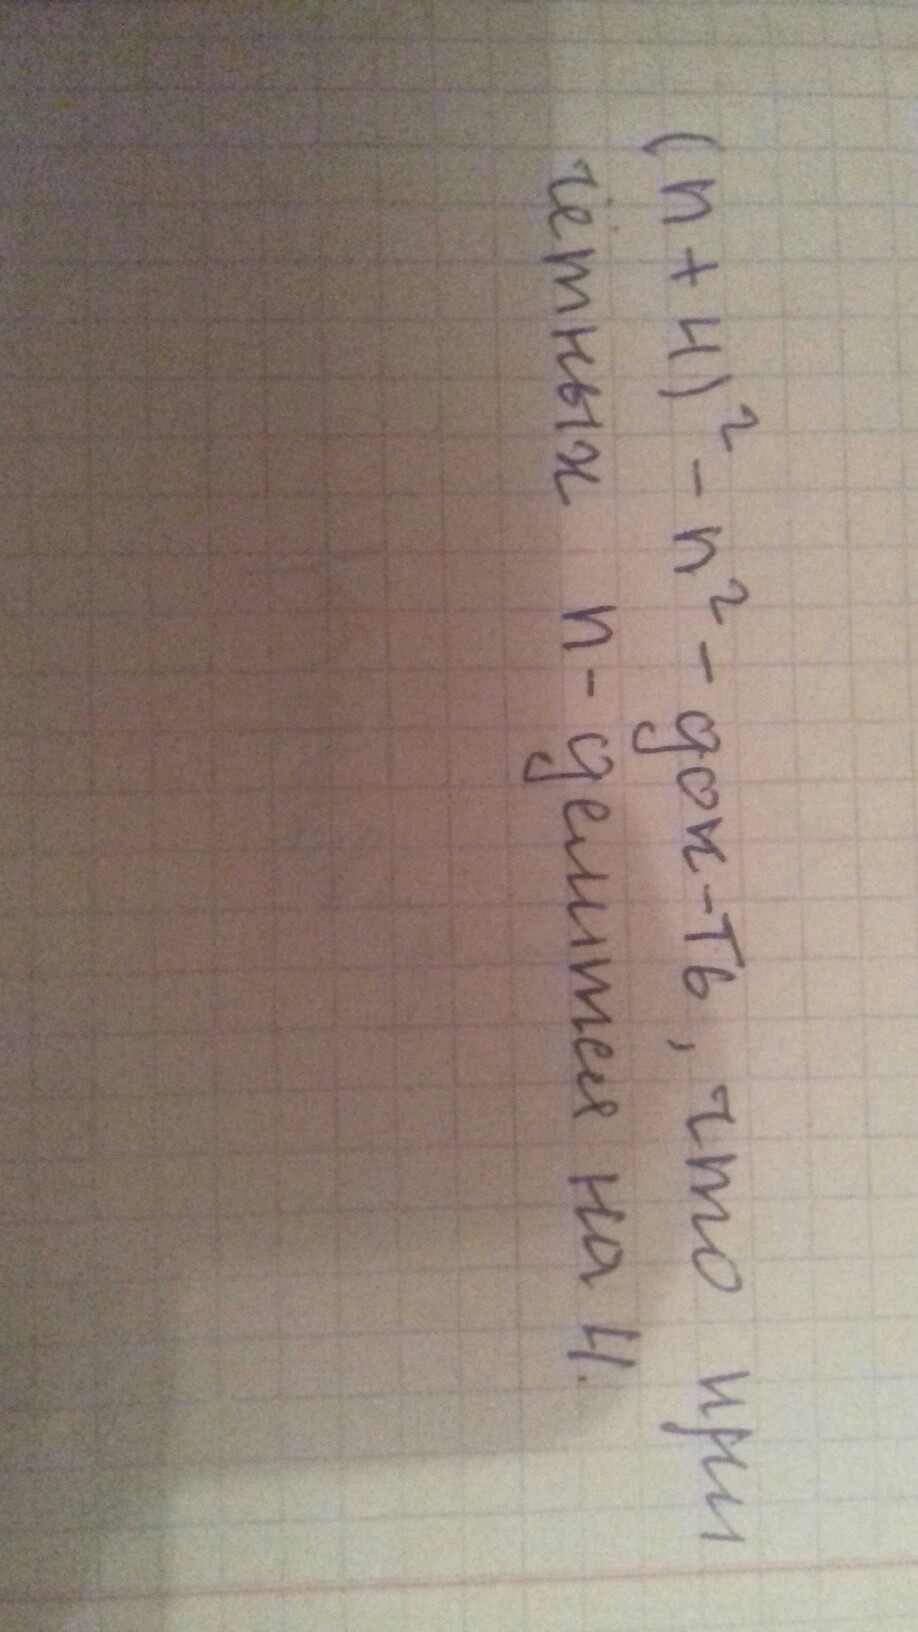 (n+4)² - n² - док-ть, что при
чётных n - делится на 4.